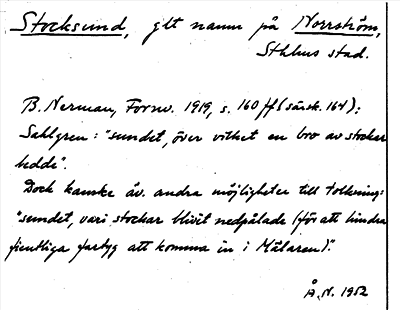 Stocksund, glt namn på Norrström,
Sthlms stad.
B. Nerman, Fornv. 1919, s. 160 ff (särsk. 164):
Sahlgren: "sundet, över vilket en bro av stockar
ledde".
Dock kanske äv. andra möjligheter till tolkning:
"sundet, vari stockar blivit nedpålade (för att hindra
fientliga fartyg att komma in i Mälaren)".
Å. N. 1952